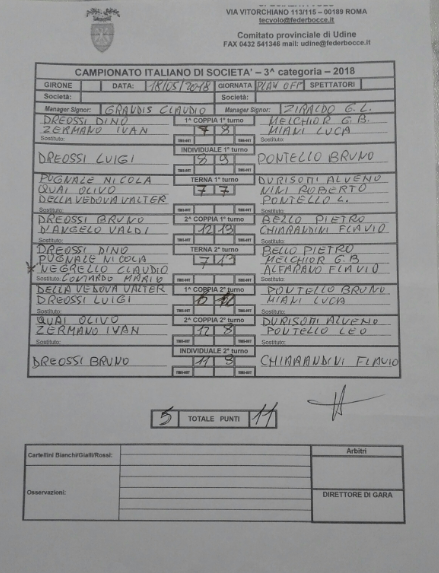 VIA VITORCHIANO 113/115 – 00189 ROMA
tecvolo@federbocce.it
Comitato provinciale di Udine
FAX 0432 541346 mail: udine@federbocce.it
CAMPIONATO ITALIANO DI SOCIETA' – 3^ categoria – 2018
GIRONE DATA: 18/05/2018 GIORNATA PLAY OFF SPETTATORI
Società: Società:
Manager Signor: GRANDIS CLAUDIO Manager Signor: ZIRALDO G.L.
DREOSSI DINO 1^ COPPIA 1° turno MELCHIOR G.B.
ZERMANO IVAN 7 8 MIANI LUCA
Sostituto:
INDIVIDUALE 1° turno
DREOSSI LUIGI 8 9 PONTELLO BRUNO
PUGNALE NICOLA TERNA 1° turno DURISOTTI ALVENO
QUAI OLIVO 7 7 NINI ROBERTO
DELLA VEDOVA VALTER PONTELLO L.
Sostituto:
DREOSSI BRUNO 2^ COPPIA 1° turno BELLO PIETRO
D'ANGELO VALDI 12 13 CHIARANDINI FLAVIO
Sostituto:
DREOSSI DINO TERNA 2° turno BELLO PIETRO
PUGNALE NICOLA MELCHIOR G.B.
NEGRELLO CLAUDIO 7 13 ALFARANO FLAVIO
Sostituto: LOVISARDO MARIO
DELLA VEDOVA VALTER 1^ COPPIA 2° turno PONTELLO BRUNO
DREOSSI LUIGI MIANI LUCA
Sostituto:
QUAI OLIVO 2^ COPPIA 2° turno DURISOTTI ALVENO
ZERMANO IVAN 12 8 PONTELLO LEO
Sostituto:
INDIVIDUALE 2° turno
DREOSSI BRUNO 11 8 CHIARANDINI FLAVIO
5 TOTALE PUNTI 11
Cartellini Bianchi/Gialli/Rossi: Arbitri
Osservazioni: DIRETTORE DI GARA